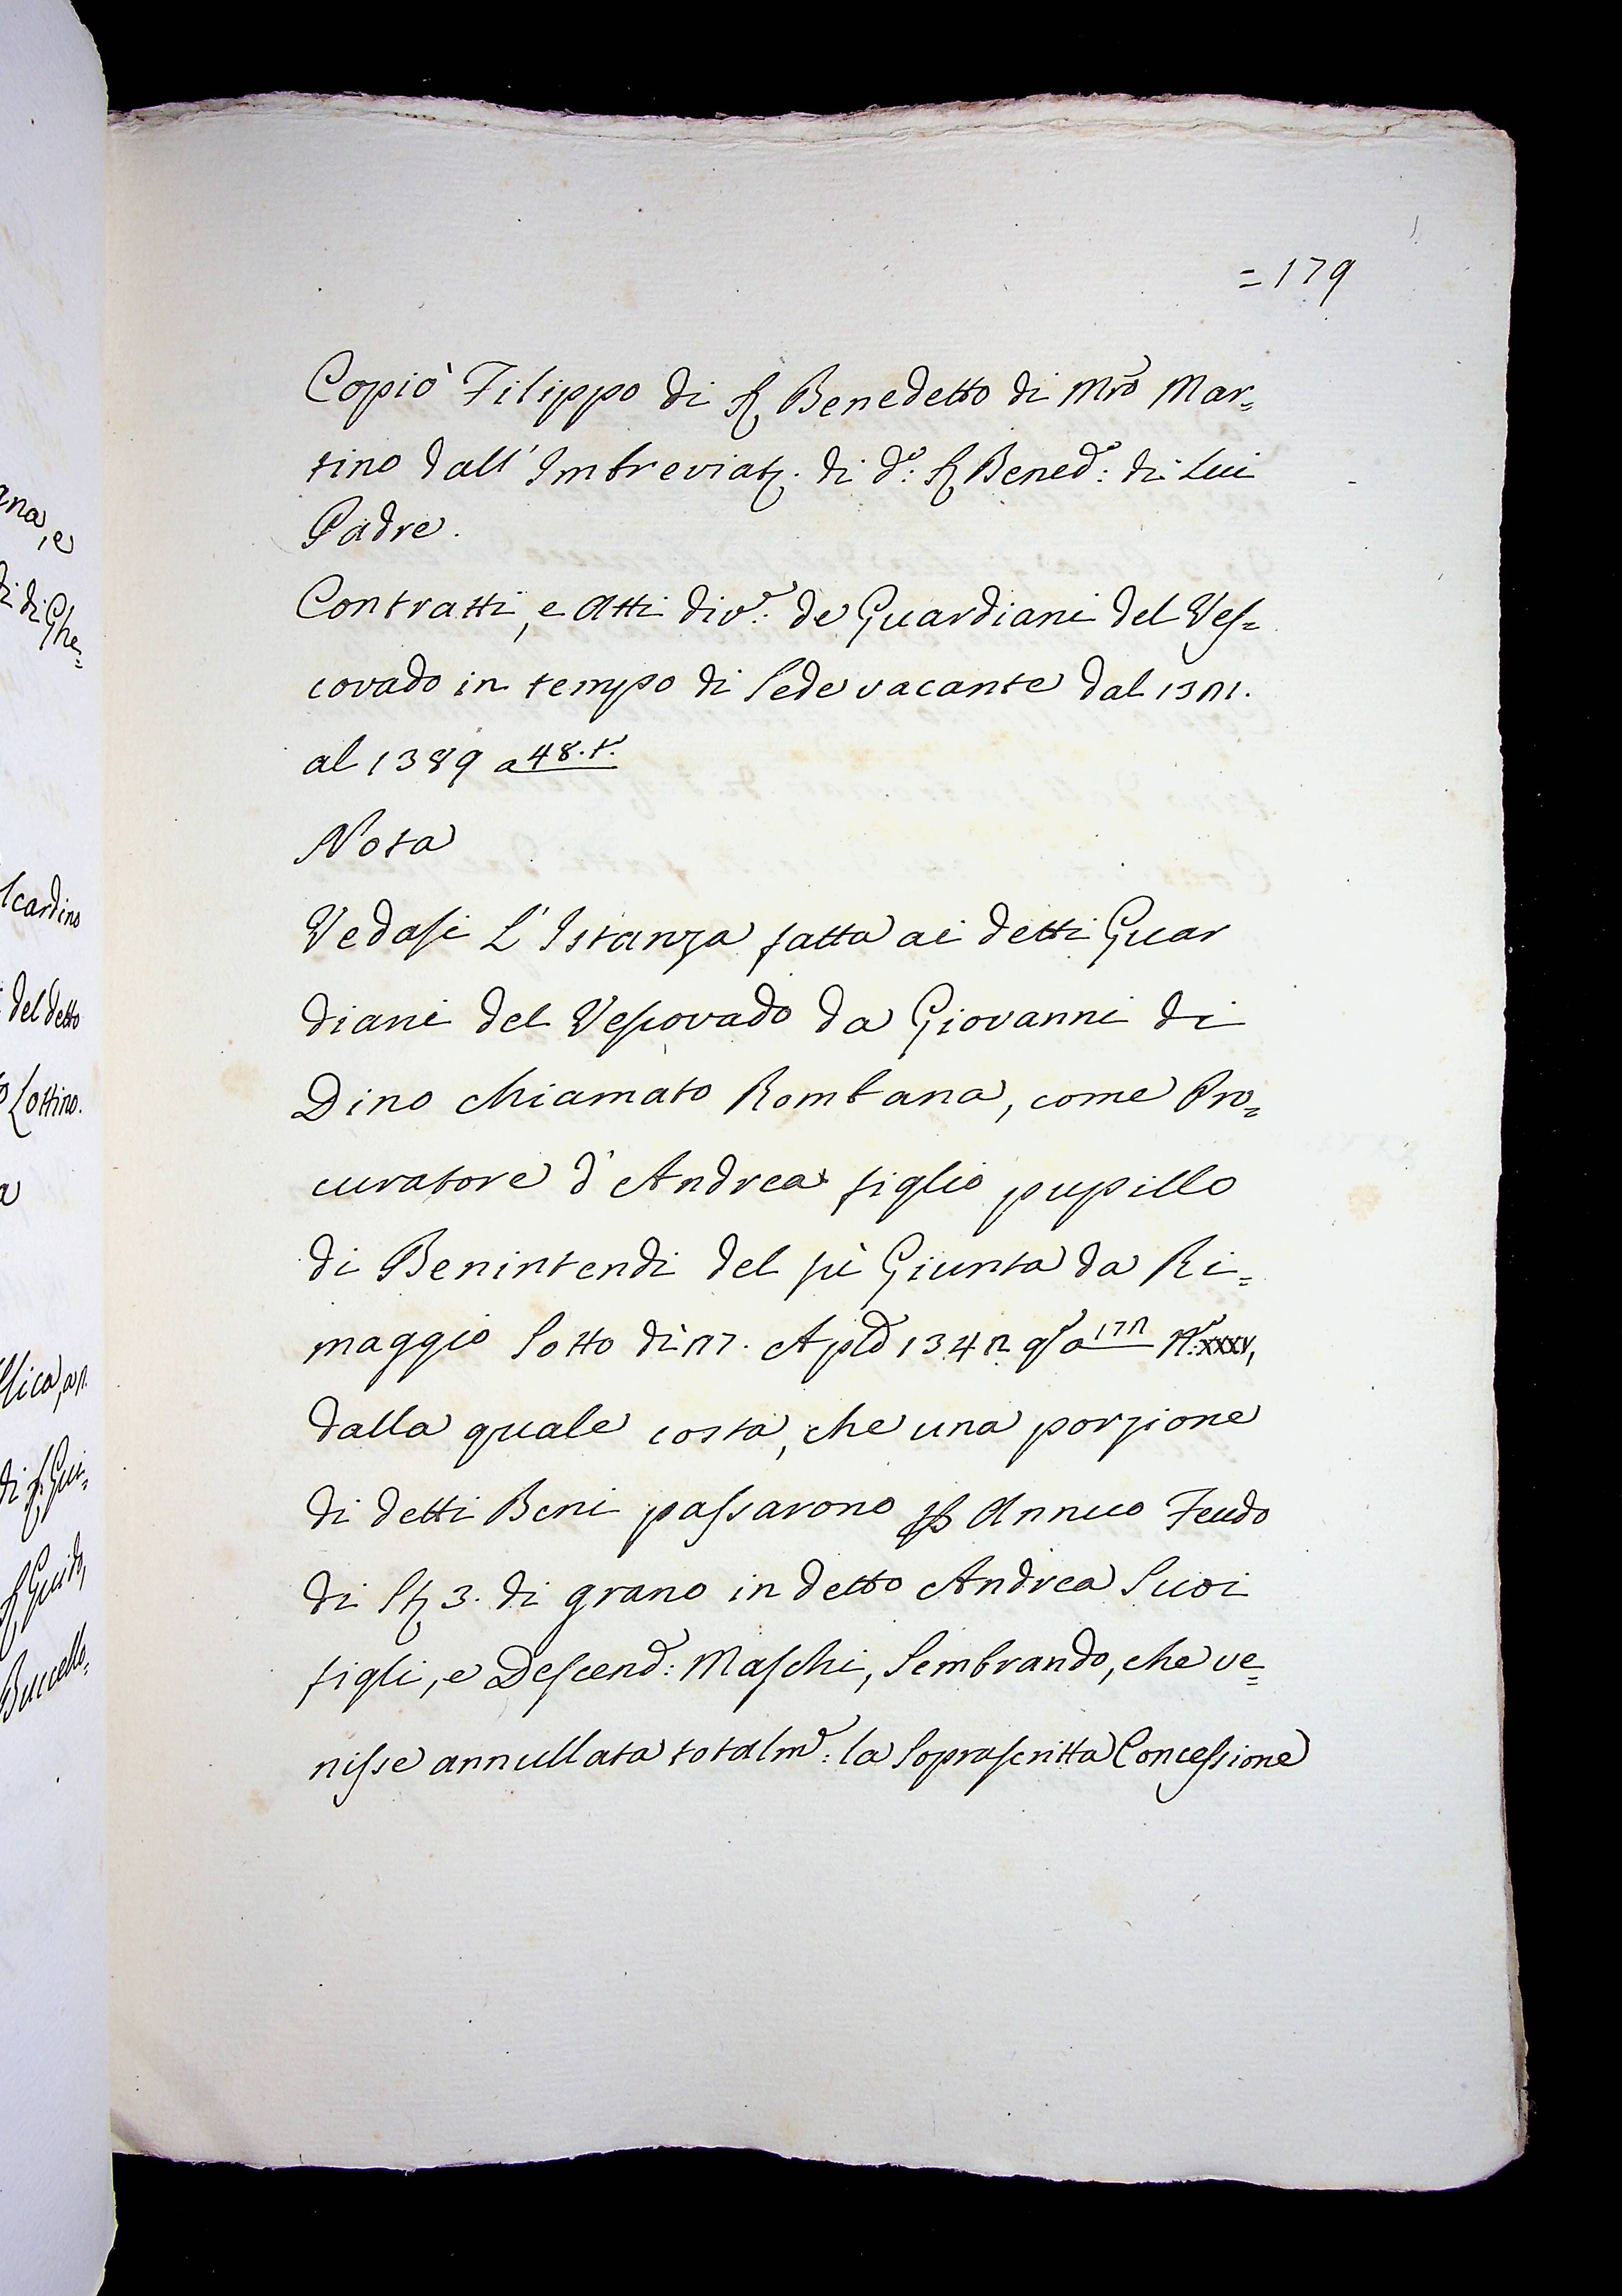 = 179
Copiò Filippo di Benedetto di Mro Mar=
tino dall' Imbreviatz. di do: Bened: di Lui
Padre.
Contratti, e Atti div: de Guardiani del Ves=
covado in tempo di Sede vacante dal 1321.
al 1389 a 48. t.
Nota
Vedasi L'Istanza fatta ai detti Guar
diani del Vescovado da Giovanni di
Dino chiamato Rombana, come Pro=
curatore d'Andrea figlio pupillo
di Benintendi del fù Giunta da Ri=
maggio Sotto dì 27. 1342 a 172 No: XXXV,
dalla quale costa, che una porzione
di detti Beni passarono Annuo Feudo
di 3. di grano in detto Andrea Suoi
figli, e Descend: Maschi, Sembrando, che ve=
nisse annullata totalme: la Soprascritta Concessione
ana, e
di di Ghe=
del detto
Lottino.
di Gui=
Guido,
Bucello.